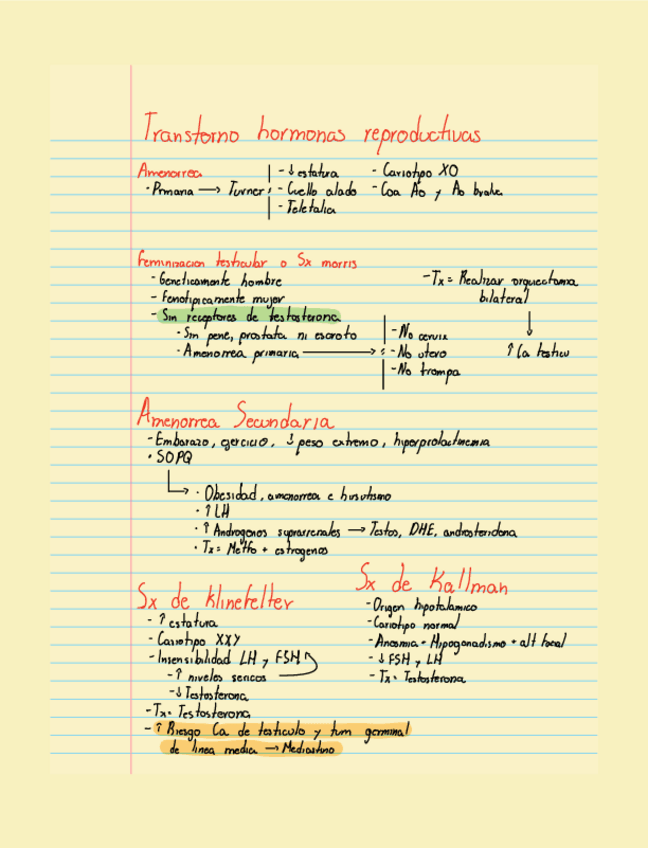 Transtorno hormonas reproductivas
Amenorrea
· Primaria → Turner:
- ↓ estatura
- Cuello alado
- Teletalia
- Cariotipo XO
- Coa Ao y Ao bivalva
Feminizacion testicular o Sx morris
- Geneticamente hombre
- Fenotipicamente mujer
- Sin receptores de testosterona
· Sin pene, prostata ni escroto
· Amenorrea primaria → :
- No cervix
- No utero
- No trompa
- Tx = Realizar orquectoma
bilateral
↑ Ca testicu
Amenorrea Secundaria
- Embarazo, ejercicio, ↓ peso extremo, hiperprolactinemia
· SOPQ
· Obesidad, amenorrea e hirsutismo
· ↑ LH
· ↑ Androgenos suprarrenales → Testos, DHE, androstendiona
· Tx = Metfo + estrogenos
Sx de Klinefelter
- ↑ estatura
- Cariotipo XXY
- Insensibilidad LH y FSH
- ↑ niveles sericos
- ↓ Testosterona
- Tx = Testosterona
- ↑ Riesgo Ca de testiculo y tum germinal
de linea media → Mediastino
Sx de Kallman
- Origen hipotalamico
- Cariotipo normal
- Anosmia + Hipogonadismo + alt facial
- ↓ FSH y LH
- Tx = Testosterona